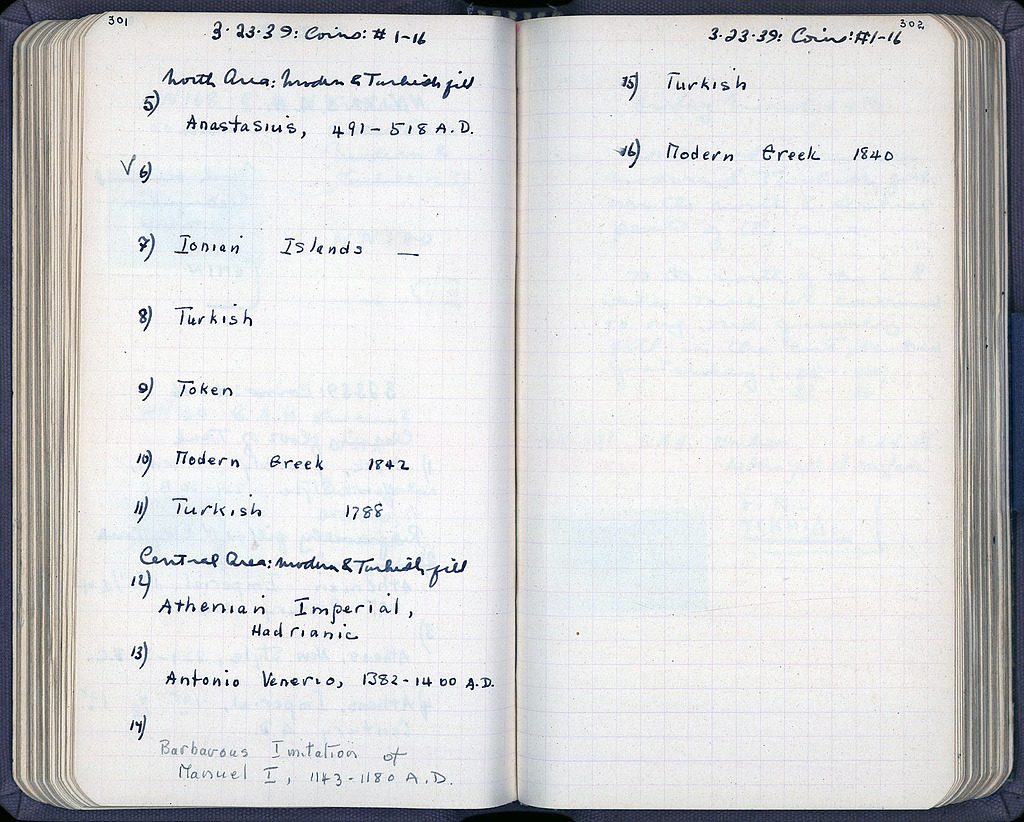 301
3·23·39: Coins: # 1-16
North Area: Modern & Turkish fill
5)
Anastasius, 491-518 A.D.
√ 6)
7) Ionian Islands —
8) Turkish
9) Token
10) Modern Greek 1842
11) Turkish 1788
Central Area: Modern & Turkish fill
12)
Athenian Imperial,
Hadrianic
13)
Antonio Venerio, 1382-1400 A.D.
14)
Barbarous Imitation of
Manuel I, 1143-1180 A.D.
302
3·23·39: Coins: #1-16
15) Turkish
16) Modern Greek 1840